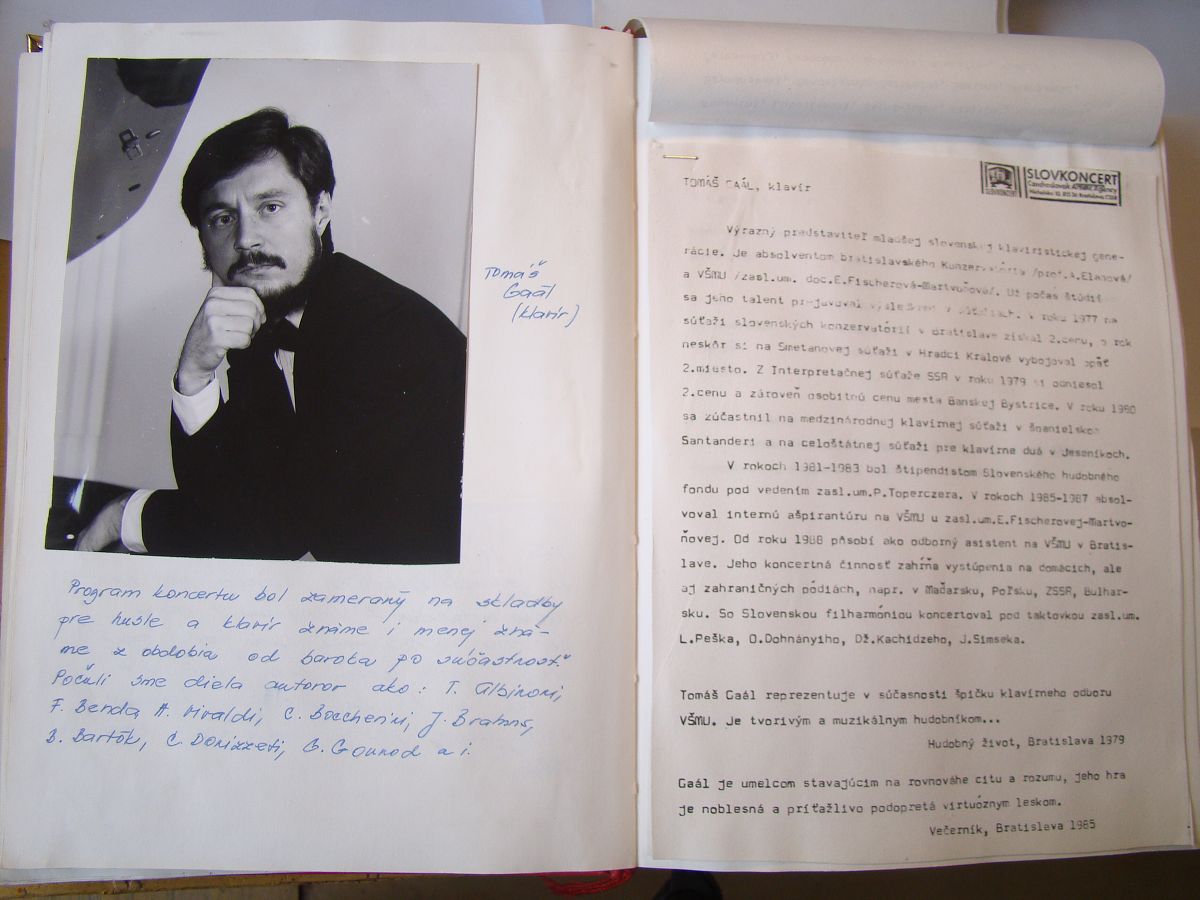 Tomáš
Gaál
(klavír)
Program koncertu bol zameraný na skladby
pre husle a klavír známe i menej zná-
me z obdobia od baroka po súčastnosť.
Počuli sme diela autorov ako: T. Albinoni,
F. Benda, A. Vivaldi, C. Boccherini, J. Brahms,
B. Bartók, C. Donizzeti, G. Gounod a i.
SLOVKONCERT
SLOVKONCERT
Czechoslovak Artistic Agency
TOMÁŠ GAÁL, klavír
Výrazný predstaviteľ mladšej slovenskej klaviristickej gene-
rácie. Je absolventom bratislavského Konzervatória /prof.A.Elanová/
a VŠMU /zasl.um. doc.E.Fischerová-Martvoňová/. Už počas štúdií
sa jeho talent prejavoval v súťažiach. V roku 1977 na
súťaži slovenských konzervatórií v Bratislave získal 2.cenu, o rok
neskôr si na Smetanovej súťaži v Hradci Králové vybojoval opäť
2.miesto. Z Interpretačnej súťaže SSR v roku 1979 si odniesol
2.cenu a zároveň osobitnú cenu mesta Banskej Bystrice. V roku 1980
sa zúčastnil na medzinárodnej klavírnej súťaži v španielskom
Santanderi a na celoštátnej súťaži pre klavírne duá v Jeseníkoch.
V rokoch 1981-1983 bol štipendistom Slovenského hudobného
fondu pod vedením zasl.um.P.Toperczera. V rokoch 1985-1987 absol-
voval internú ašpirantúru na VŠMU u zasl.um.E.Fischerovej-Martvo-
ňovej. Od roku 1988 pôsobí ako odborný asistent na VŠMU v Bratis-
lave. Jeho koncertná činnosť zahŕňa vystúpenia na domácich, ale
aj zahraničných pódiách, napr. v Maďarsku, Poľsku, ZSSR, Bulhar-
sku. So Slovenskou filharmóniou koncertoval pod taktovkou zasl.um.
L.Peška, O.Dohnányiho, Dž.Kachidzeho, J.Simseka.
Tomáš Gaál reprezentuje v súčasnosti špičku klavírneho odboru
VŠMU. Je tvorivým a muzikálnym hudobníkom...
Hudobný život, Bratislava 1979
Gaál je umelcom stavajúcim na rovnováhe citu a rozumu, jeho hra
je noblesná a príťažlivo podopretá virtuóznym leskom.
Večerník, Bratislava 1985